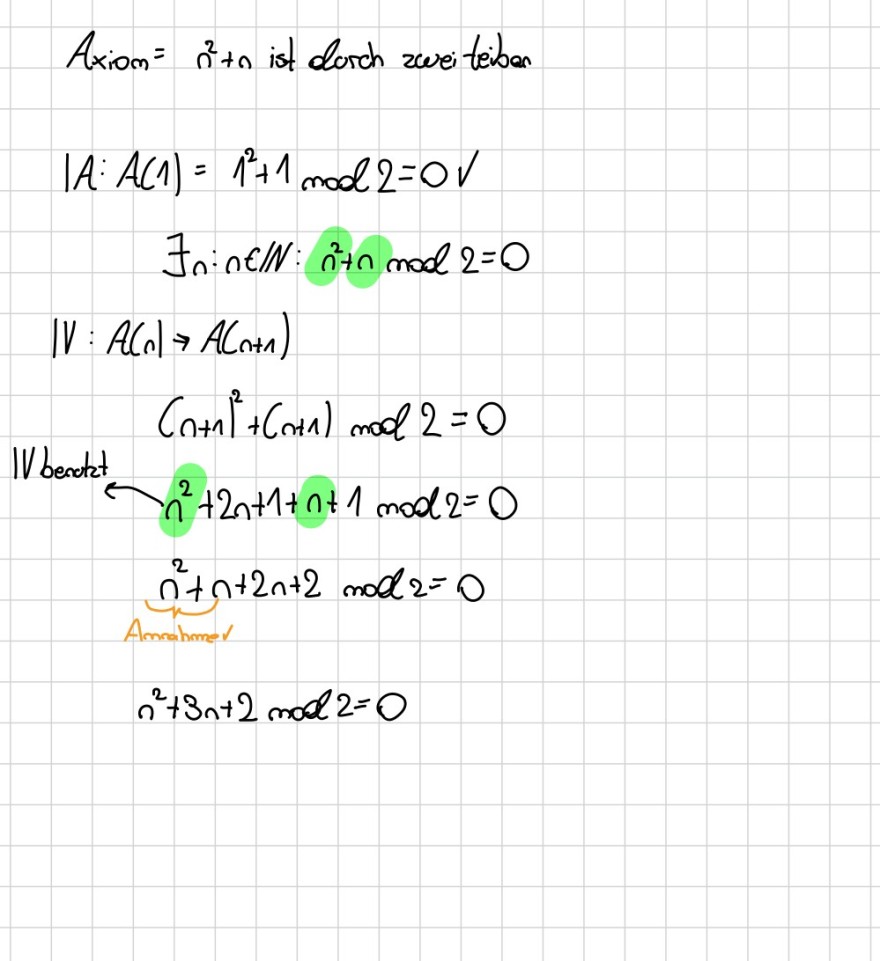 Axiom = n²+n ist durch zwei teibar
IA: A(1) = 1²+1 mod 2=0 ✓
∃n:n∈ℕ: n²+n mod 2=0
IV: A(n) → A(n+1)
(n+1)²+(n+1) mod 2=0
IV benutzt
n²+2n+1+n+1 mod 2=0
n²+n+2n+2 mod 2=0
Annahme ✓
n²+3n+2 mod 2=0